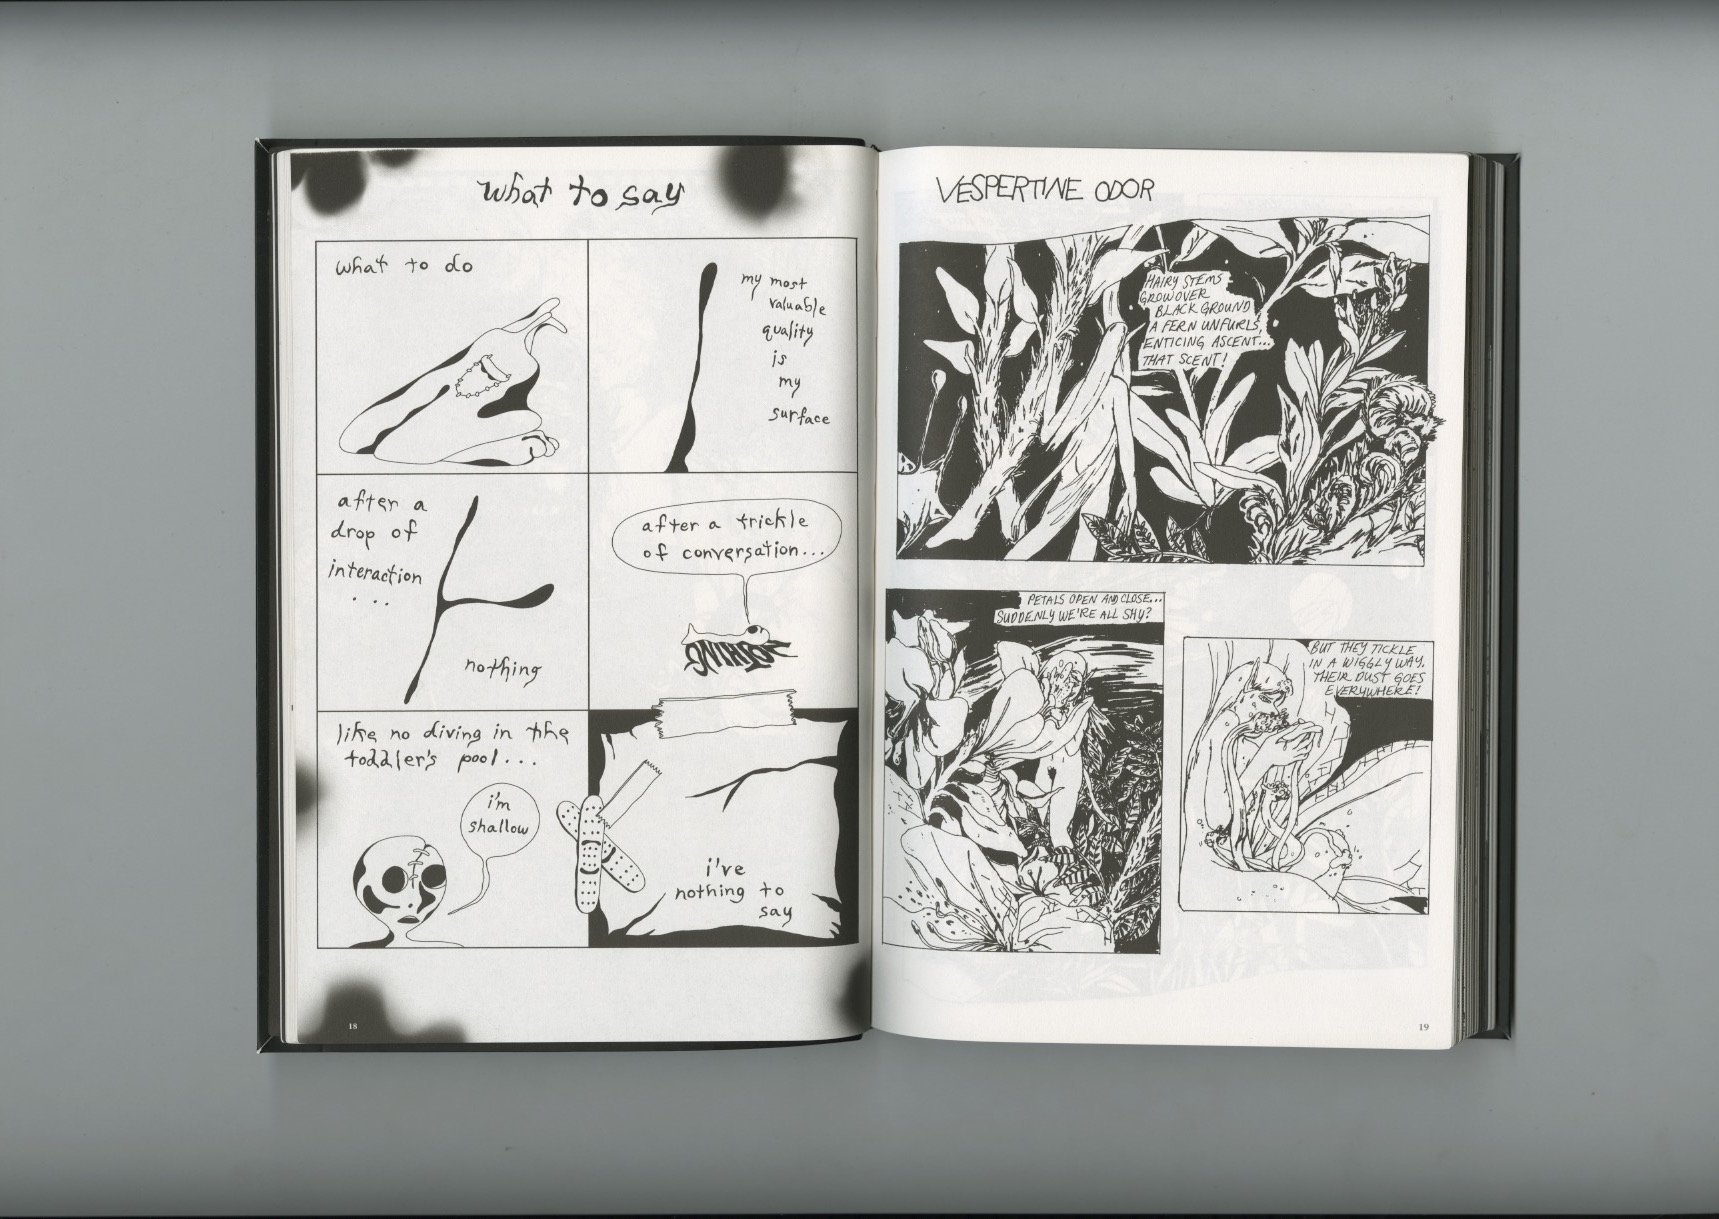 what to say
what to do
my most
valuable
quality
is
my
surface
after a
drop of
interaction
...
nothing
after a trickle
of conversation...
NOTHING
like no diving in the
toddler's pool...
i'm
shallow
i've
nothing to
say
18
VESPERTINE ODOR
HAIRY STEMS
GROW OVER
BLACK GROUND
A FERN UNFURLS,
ENTICING ASCENT...
THAT SCENT!
PETALS OPEN AND CLOSE...
SUDDENLY WE'RE ALL SHY?
BUT THEY TICKLE
IN A WIGGLY WAY.
THEIR DUST GOES
EVERYWHERE!
19